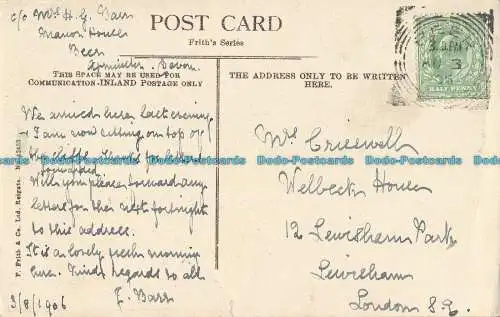 c/o Mrs H. G. Barr
Manor House
Beer
Axminster. Devon.
POST CARD
Frith's Series
THIS SPACE MAY BE USED FOR
COMMUNICATION-INLAND POSTAGE ONLY
THE ADDRESS ONLY TO BE WRITTEN
HERE.
HALF PENNY
We arrived here last evening
I am now sitting on top of
the cliffs. Thanks for letters
forwarded.
Will you please forward any
letters for the next fortnight
to this address.
It is a lovely fresh morning
here. Kind regards to all
3/8/1906 F. Barr
Mrs Cresswell
Welbeck House
12 Lewisham Park
Lewisham
London S.E.
F. Frith & Co. Ltd. Reigate.
Dodo-Postcards Dodo-Postcards Dodo-Postcards Dodo-Postcards